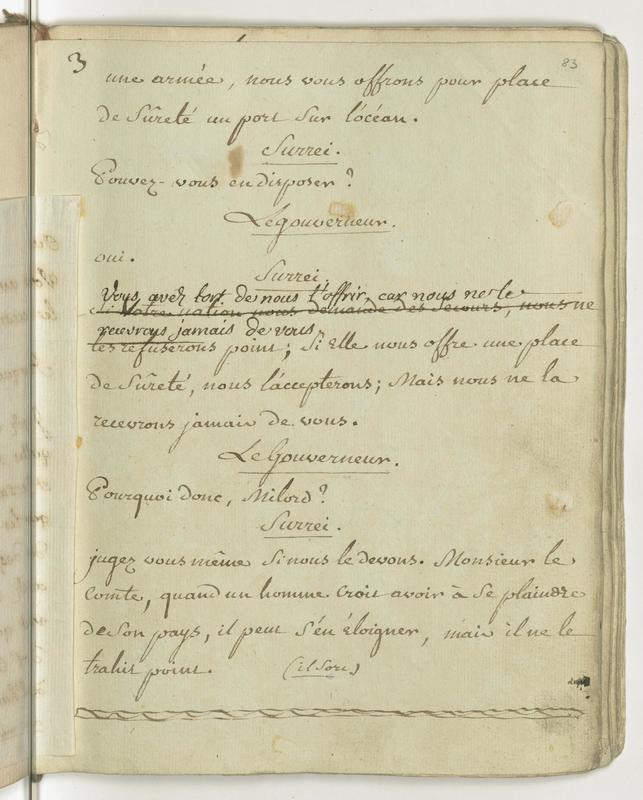 3
83
une armée, nous vous offrons pour place
de Sûreté un port Sur l'océan.
Surrei.
Pouvez-vous en disposer?
Le gouverneur.
oui.
Surrei.
Vous avez tort de nous l'offrir, car nous ne le
Si votre nation nous demande des secours, nous ne
recevrons jamais de vous
les refuserons point; Si Elle nous offre une place
de Sûreté, nous l'accepterons; Mais nous ne la
recevrons jamais de vous.
Le Gouverneur.
Pourquoi donc, Milord?
Surrei.
jugez vous même Si nous le devons. Monsieur le
Comte, quand un homme Croit avoir à Se plaindre
de Son pays, il peut S'en Éloigner, mais il ne le
trahit point. (il Sort)